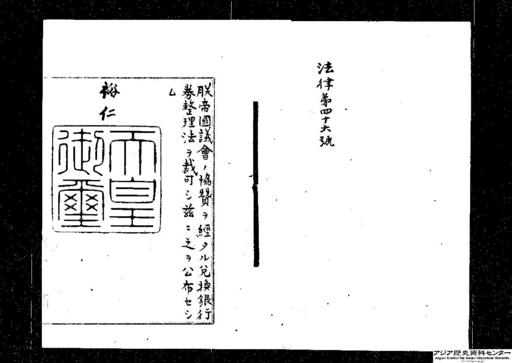 法律第四十六號
朕帝國議會ノ協賛ヲ經タル兌換銀行
券整理法ヲ裁可シ茲ニ之ヲ公布セシ
ム
裕仁
天皇
御璽
アジア歴史資料センター
Japan Center for Asian Historical Records